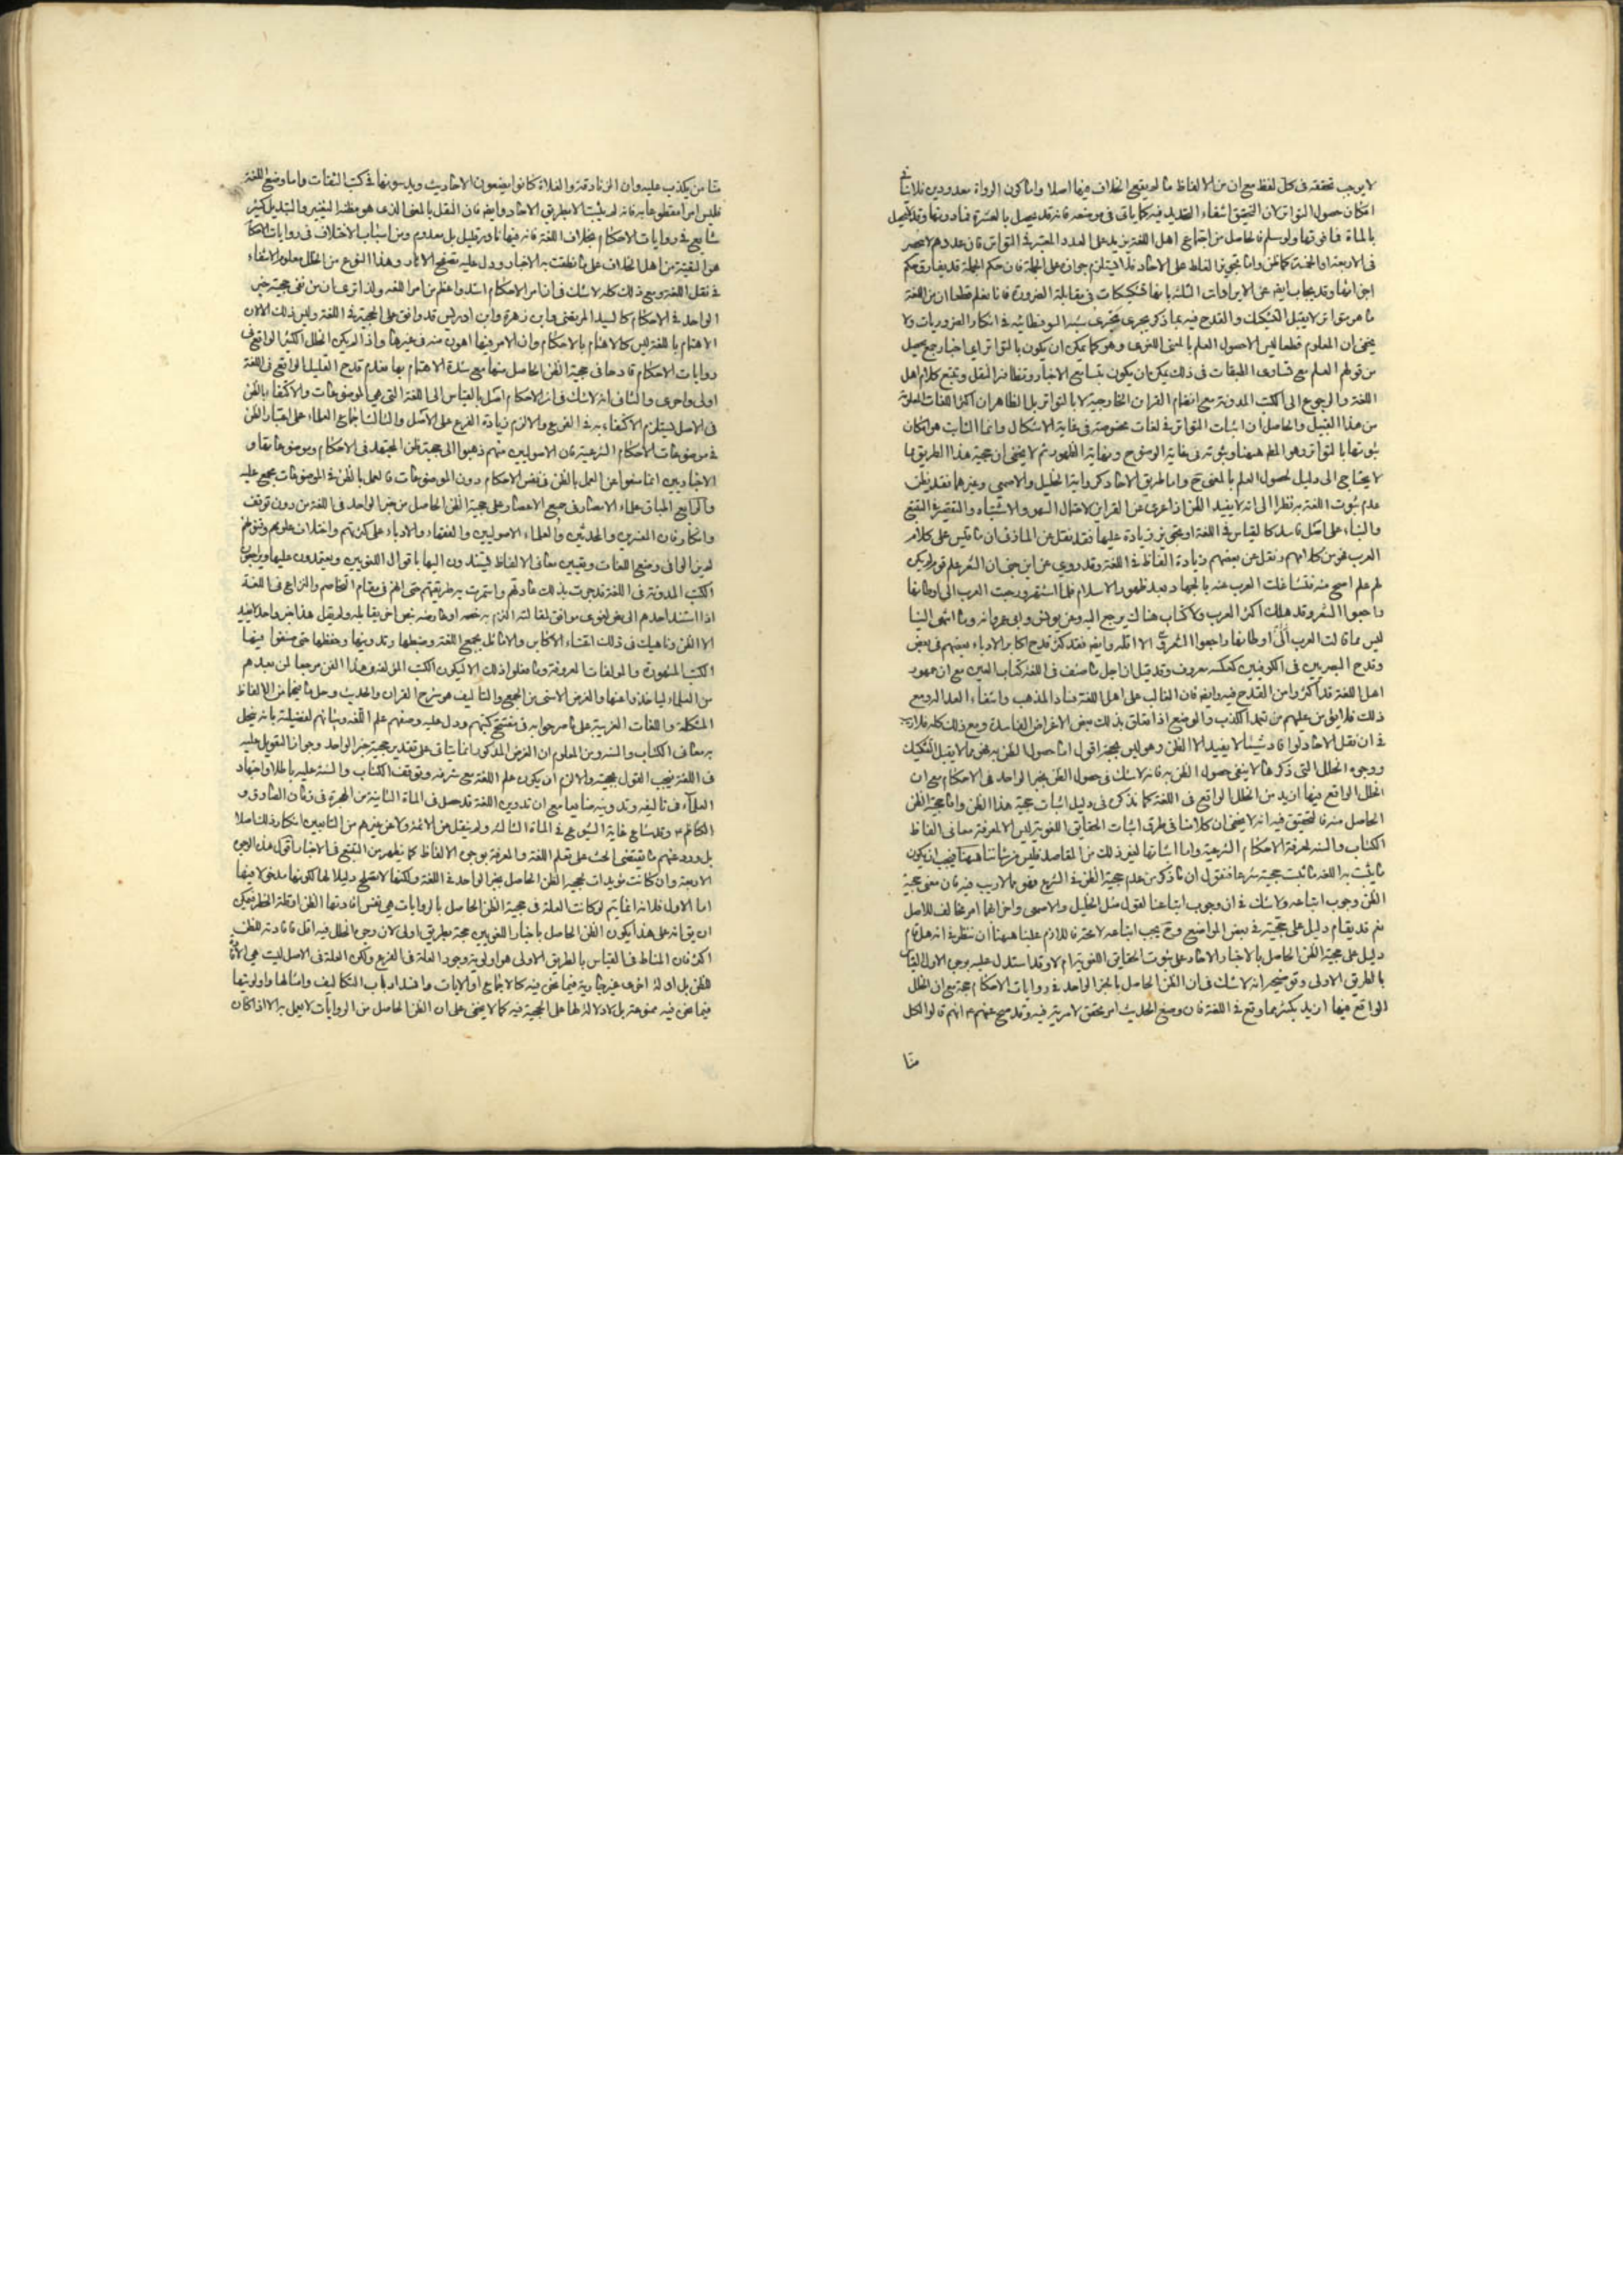 لا يوجب تحققه في كل لفظ مع ان من الالفاظ ما لم يقع الخلاف فيها اصلا واما كون الرواة معدودين فلا ينافي
امكان حصول التواتر لان التحقيق انتفاء التحديد فيه كما ياتي في موضعه فانه قد يحصل بالعشرة فما دونها وقد لا يحصل
بالماة فما فوقها ولو سلم فالحاصل من اجتماع اهل اللغة يزيد على العدد المعتبر في التواتر فان عددهم لا ينحصر
في الاربعة او الخمسة كما ظن واما تجويز الغلط على الاحاد فلا يستلزم جوازه على الجملة فان حكم الجملة قد يفارق حكم
اجزائها وقد يجاب ايضا عن الايرادات الثلثة بانها تشكيكات في مقابلة الضرورة فانا نعلم قطعا ان من اللغة
ما هو متواتر لا يقبل التشكيك والقدح فيه بما ذكر يجري مجرى شبه السوفسطائية في انكار الضروريات ولا
يخفى ان المعلوم قطعا ليس الا حصول العلم بالمعنى اللغوي وهو كما يمكن ان يكون بالتواتر اي اخبار جمع يحصل
من قولهم العلم مع تساوي الطبقات في ذلك يمكن ان يكون بتسامع الاخبار وتظافر النقل وتتبع كلام اهل
اللغة والرجوع الى الكتب المدونة مع انضمام القراين الخارجية لا بالتواتر بل الظاهر ان اكثر اللغات المعلومة
من هذا القبيل والحاصل ان اثبات التواتر في لغات مخصوصة في غاية الاشكال وانما الثابت هو امكان
ثبوتها بالتواتر وهو المط هيهنا وثبوته في غاية الوضوح ونهاية الظهور ثم لا يخفى ان حجية هذا الطريق مما
لا يحتاج الى دليل لحصول العلم بالمعنى ح واما طريق الاحاد كرواية الخليل والاصمعي وغيرهما فقد يظن
عدم ثبوت اللغة به نظرا الى انه لا يفيد الظن اذا عري عن القراين لاحتمال السهو والاشتباه والتقصير في التتبع
والبناء على اصل فاسد كالقياس في اللغة او تجويز زيادة عليها فقد نقل عن المازني ان ما قيس على كلام
العرب فهو من كلامهم ونقل عن بعضهم زيادة الفاظ في اللغة وقد روي عن ابن جني ان الشعر علم قوم لم يكن
لهم علم اصح منه فتشاغلت العرب عنه بالجهاد بعد ظهور الاسلام فلما استقر ورجعت العرب الى اوطانها
راجعوا الشعر وقد هلك اكثر العرب ولا كتاب هناك يرجع اليه وعن يونس وابي عمرو انه ما انتهى الينا
ليس مما قالت العرب الا اقله وايضا فقد كثر قدح اكابر الادباء بعضهم في بعض
وقدح البصريين في الكوفيين كعكسه معروف وقد قيل ان اجل ما صنف في اللغة كتاب العين مع ان جمهور
اهل اللغة قد اكثروا من القدح فيه وايضا فان الغالب على اهل اللغة فساد المذهب وانتفاء العدالة ومع
ذلك فلا يؤمن عليهم من تعمد الكذب والوضع اذا تعلق بذلك بعض الاغراض الفاسدة ومع ذلك كله فلا ريب
في ان نقل الاحاد لو افاد شيئا لا يفيد الا الظن وهو ليس بحجة اقول اما حصول الظن به فهو مما لا يقبل التشكيك
ووجوه الخلل التي ذكرها لا ينفي حصول الظن به فانه لا شك في حصول الظن بخبر الواحد في الاحكام مع ان
الخلل الواقع فيها ازيد من الخلل الواقع في اللغة كما نذكره في دليل اثبات حجية هذا الظن واما حجية الظن
الحاصل منه فالتحقيق فيه انه لا يخفى ان كلامنا في طرق اثبات الحقايق اللغوية ليس الا لمعرفة معاني الفاظ
الكتاب والسنة لمعرفة الاحكام الشرعية واما اثباتها لغير ذلك من المقاصد فليس من شاننا هيهنا فيجب ان يكون
ما يثبت به اللغة ما ثبت حجيته شرعا فنقول ان ما ذكر من عدم حجية الظن في الشرع فهو مما لا ريب فيه فان معنى حجية
الظن وجوب اتباعه ولا شك في ان وجوب اتباعنا لقول مثل الخليل والاصمعي واضرابهما امر مخالف للاصل
نعم قد يقام دليل على حجيته في بعض المواضع وح يجب اتباعه لا محة فاللازم علينا هيهنا ان ننظر في انه هل قام
دليل على حجية الظن الحاصل بالاخبار الاحاد على ثبوت الحقايق اللغوية ام لا وقد استدل عليه بوجوه الاول القياس
بالطريق الاولى وتوضيحه انه لا شك في ان الظن الحاصل بالخبر الواحد في روايات الاحكام حجة مع ان الخلل
الواقع فيها ازيد بكثير مما وقع في اللغة فان وضع الحديث امر محقق لا مرية فيه وقد صح عنهم انهم قالوا لكل
منا
منا من يكذب عليه وان الزنادقة والغلاة كانوا يضعون الاحاديث ويدسونها في كتب الثقات واما وضع اللغة
فليس امرا مقطوعا به فانه لم يثبت الا بطريق الاحاد وايضا فان النقل بالمعنى الذي هو مظنة التغيير والتبديل كثير
شايع في روايات الاحكام بخلاف اللغة فانه فيها نادر قليل بل معدوم ومن اسباب الاختلاف في روايات الاحكام
هو التقية من اهل الخلاف على ما نطقت به الاخبار ودل عليه تصفح الاثار وهذا النوع من الخلل معلوم الانتفاء
في نقل اللغة ومع ذلك كله لا شك في ان امر الاحكام اشد واعظم من امر اللغة ولذا ترى ان من نفى حجية خبر
الواحد في الاحكام كالسيد المرتضى وابن زهرة وابن ادريس قد وافق على الحجية في اللغة وليس ذلك الا لان
الاهتمام باللغة ليس كالاهتمام بالاحكام وان الامر فيها اهون منه في غيرها واذا لم يكن الخلل الكثير الواقع في
روايات الاحكام قادحا في حجية الظن الحاصل منها مع شدة الاهتمام بها فعدم قدح القليل الواقع في اللغة
اولى واحرى والثاني انه لا شك في ان الاحكام اصل بالقياس الى اللغة التي هي الموضوعات والاكتفاء بالظن
في الاصل يستلزم الاكتفاء به في الفرع والا لزم زيادة الفرع على الاصل والثالث اجماع العلماء على اعتبار الظن
في موضوعات الاحكام الشرعية فان الاصوليين منهم ذهبوا الى حجية ظن المجتهد في الاحكام وموضوعاتها و
الاخباريين انما منعوا عن العمل بالظن في نفس الاحكام دون الموضوعات فالعمل بالظن في الموضوعات مجمع عليه
والرابع اطباق علماء الامصار في جميع الاعصار على حجية الظن الحاصل من خبر الواحد في اللغة من دون توقف
وانكار فان المفسرين والمحدثين والعلماء الاصوليين والفقهاء والادباء على كثرتهم واختلاف علومهم وفنونهم
لم يزالوا في وضع اللغات وتعيين معاني الالفاظ يستندون اليها باقوال اللغويين ويعتمدون عليها ويراجعون
الكتب المدونة في اللغة قد جرت بذلك عادتهم واستمرت به طريقتهم حتى انهم في مقام التخاصم والنزاع في اللغة
اذا استند احدهم الى نص لغوي موافق لمقالته التزم به خصمه او عارضه بنص اخر يقابله ولم يقل هذا خبر واحد لا يفيد
الا الظن وناهيك في ذلك اعتناء الاكابر والاماثل بجمع اللغة وضبطها وتدوينها وحفظها حتى صنفوا فيها
الكتب المشهورة والمولفات المعروفة وما فعلوا ذلك الا ليكون الكتب المؤلفة في هذا الفن مرجعا لمن بعدهم
من العلماء لياخذوا عنها والغرض الاسنى من الجمع والتاليف هو شرح القران والحديث وحل ما فيهما من الالفاظ
المشكلة واللغات الغريبة على ما صرحوا به في مفتتح كتبهم ودل عليه وصفهم علم اللغة وبيانهم لفضيلته بانه ينحل
به معاني الكتاب والسنة ومن المعلوم ان الغرض المذكور انما يتاتى على تقدير حجية خبر الواحد وجواز التعويل عليه
في اللغة فيجب القول بحجيته والا لزم ان يكون علم اللغة مع شرفه وتوقف الكتاب والسنة عليه باطلا واجتهاد
العلماء في تاليفه وتدوينه ضايعا مع ان تدوين اللغة قد حصل في الماة الثانية من الهجرة في زمان الصادق و
الكاظم وقد شاع غاية الشيوع في الماة الثالثة ولم ينقل عن الائمة ولا عن غيرهم من التابعين انكار ذلك اصلا
بل ورد عنهم ما يقتضي الحث على تعلم اللغة والمعرفة بوجوه الالفاظ كما يظهر من التتبع في الاخبار اقول هذه الوجوه
الاربعة وان كانت مؤيدات لحجية الظن الحاصل بخبر الواحد في اللغة ولكنها لا تصلح دليلا لها لكونها مدخولا فيها
اما الاول فلانه انما يتم لو كانت العلة في حجية الظن الحاصل بالروايات هي نفس افادتها الظن او قلة الخطر فيمكن
ان يق انه على هذا يكون الظن الحاصل باخبار اللغويين حجة بطريق اولى لان وجوه الخلل فيه اقل فافادته للظن
اكثر فان المناط في القياس بالطريق الاولى هو اولوية وجود العلة في الفرع ولكن العلة في الاصل ليست هي الافادة
للظن بل ادلة اخرى غير جارية فيما نحن فيه كالاجماع او الايات وانسداد باب التكاليف وامثالها واولويتها
فيما نحن فيه ممنوعة بل لا دلالة لها على الحجية فيه كما لا يخفى على ان الظن الحاصل من الروايات لا يعمل به الا اذا كان